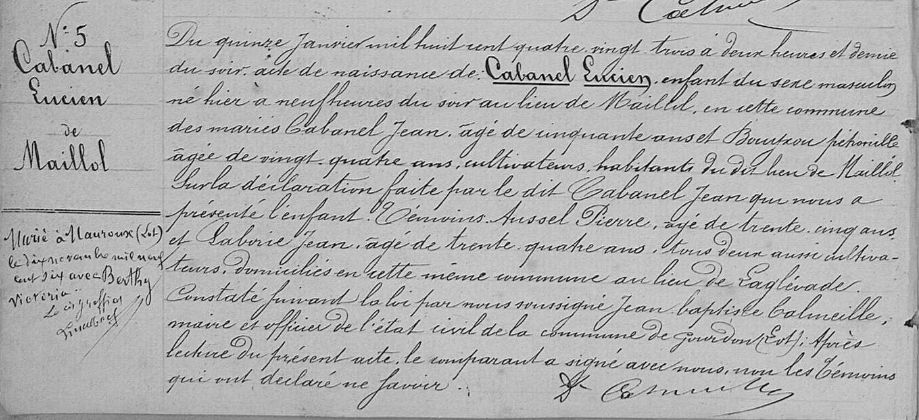 Nº 5
Cabanel
Lucien
de
Maillol
Marié à Mauroux (Lot)
le dix novembre mil neuf
cent dix avec Berthy
Victoria
Le greffier
Du quinze Janvier mil huit cent quatre vingt trois à deux heures et demie
du soir. acte de naissance de Cabanel Lucien, enfant du sexe masculin
né hier a neuf heures du soir au lieu de Maillol, en cette commune
des mariés Cabanel Jean, âgé de cinquante ans et
âgée de vingt-quatre ans, cultivateurs, habitants du dit lieu de Maillol.
Sur la déclaration faite par le dit Cabanel Jean qui nous a
présenté l'enfant. Témoins. Aussel Pierre, âgé de trente-cinq ans
et Laborie Jean, âgé de trente-quatre ans, tous deux aussi cultiva-
teurs, domiciliés en cette même commune au lieu de Laglévade.
Constaté suivant la loi par nous soussigné Jean baptiste Calmeille,
maire et officier de l'état civil de la commune de Gourdon (Lot); Après
lecture du present acte, le comparant a signé avec nous, non les Témoins
qui ont déclaré ne savoir.
Dr Calmeille